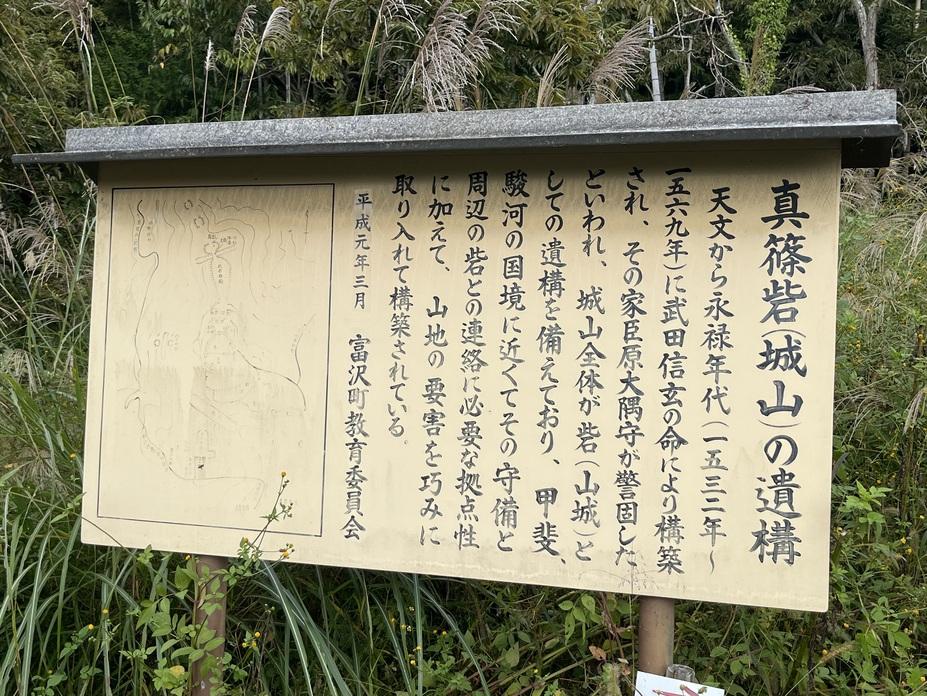 真篠砦(城山)の遺構
天文から永禄年代(一五三二年~
一五六九年)に武田信玄の命により構築
され、その家臣原大隅守が警固した
といわれ、城山全体が砦(山城)と
しての遺構を備えており、甲斐、
駿河の国境に近くてその守備と
周辺の砦との連絡に必要な拠点性
に加えて、山地の要害を巧みに
取り入れて構築されている。
平成元年三月 富沢町教育委員会